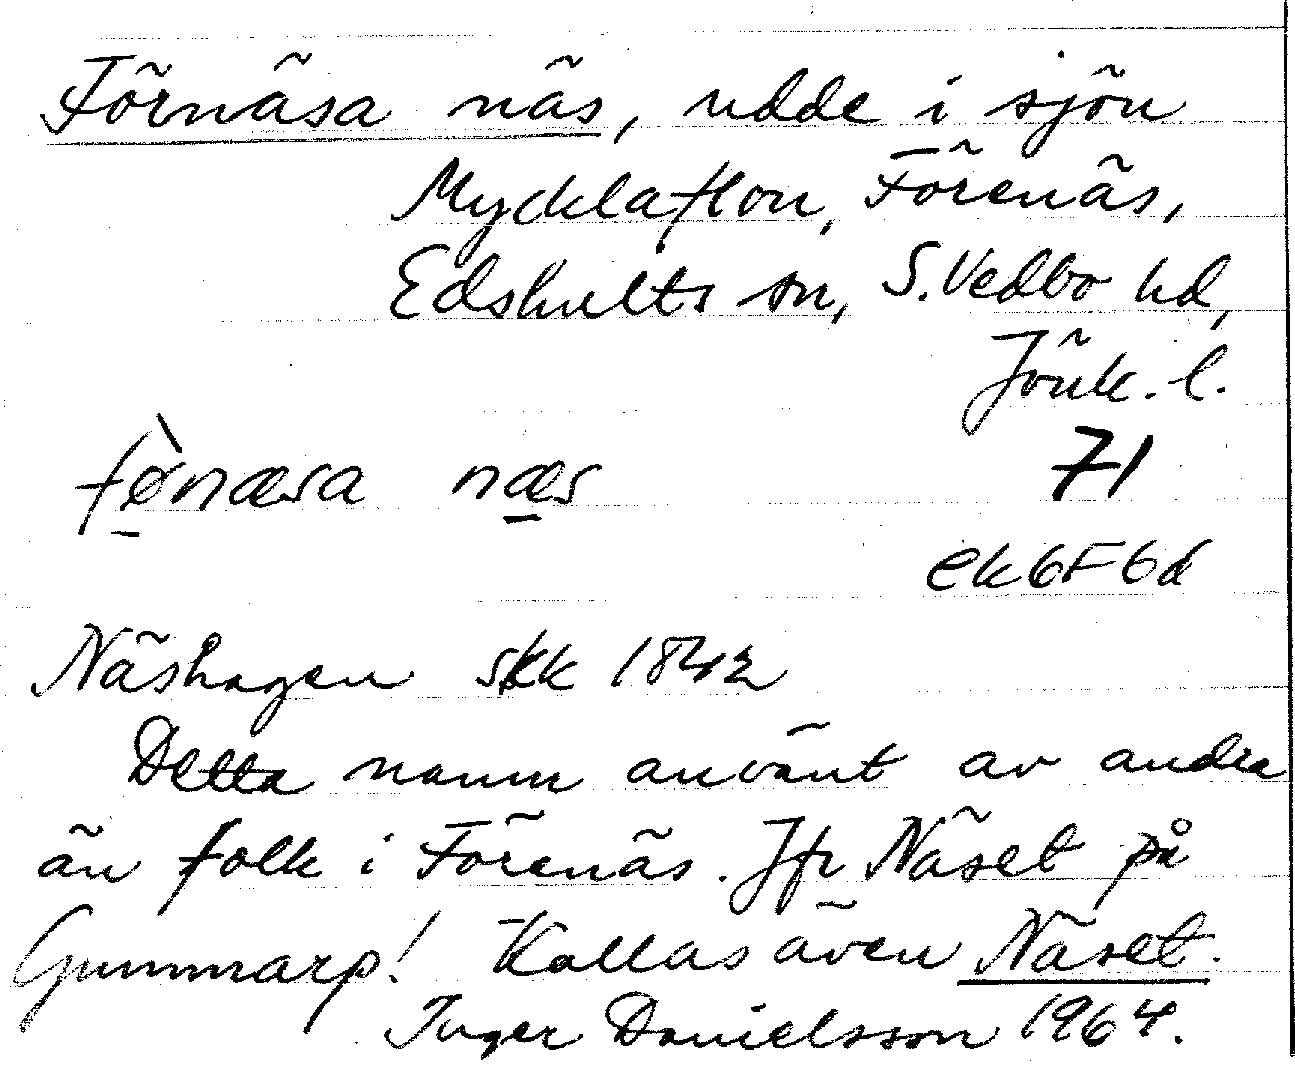 Förnäsa näs, udde i sjön
Mycklaflon, Förenäs,
Edshults sn, S. Vedbo hd,
Jönk. l.
fø̱̀næsa næ̱s 71
ek 6F6d
Näshagen skk 1842
Detta namn använt av andra
än folk i Förenäs. Jfr Näset på
Gummarp! Kallas även Näset.
Inger Danielsson 1964.